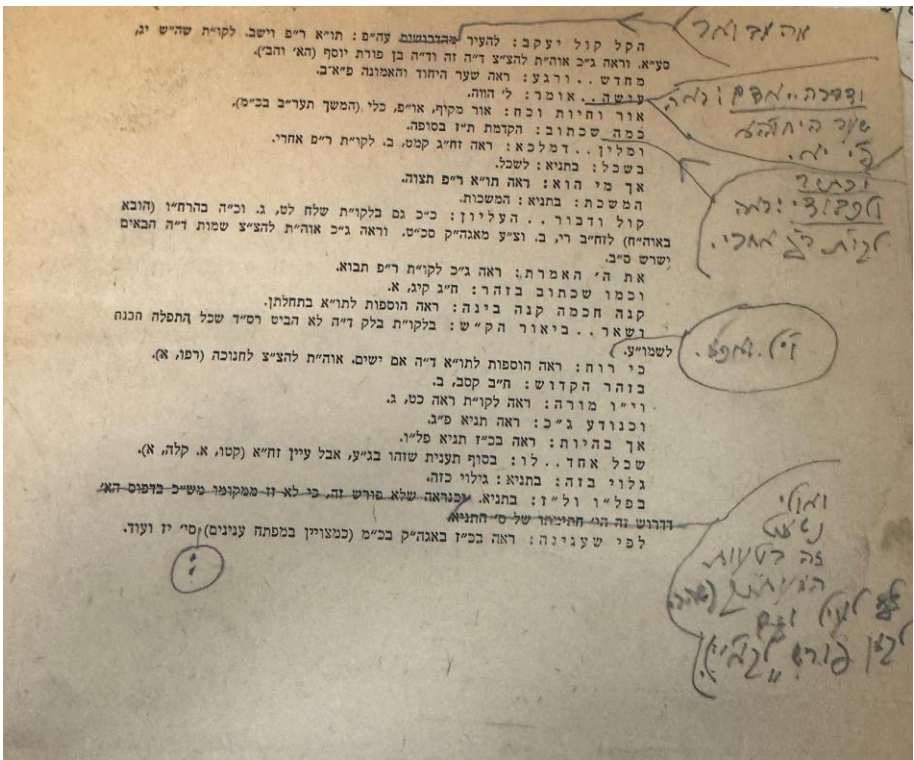 הקל קול יעקב: להעיר מהדבושים עה״פ: תו״א ר״פ וישב. לקו״ת שה״ש יג,
סע״א. וראה ג״כ אוה״ת להצ״צ ד״ה זה וד״ה בן פורת יוסף (הא׳ והב׳).
מחדש .. ורגע: ראה שער היחוד והאמונה פ״א־ב.
עושה .. אומר: ל׳ הווה.
אור וחיות וכח: אור מקיף, או״פ, כלי (המשך תער״ב בכ״מ).
כמה שכתוב: הקדמת ת״ז בסופה.
ומלין .. דמלכא: ראה זח״ג קמט, ב. לקו״ת ר״פ אחרי.
בשכל: בתניא: לשכל.
אך מי הוא: ראה תו״א ר״פ תצוה.
המשכת: בתניא: המשכות.
קול ודבור .. העליון: כ״כ גם בלקו״ת שלח לט, ג. וכ״ה בהרח״ו (הובא
באוה״ח) לזח״ב רי, ב. וצ״ע מאגה״ק סכ״ט. וראה ג״כ אוה״ת להצ״צ שמות ד״ה הבאים
ישרש ס״ב.
את ה׳ האמרת: ראה ג״כ לקו״ת ר״פ תבוא.
וכמו שכתוב בזהר: ח״ג קיג, א.
קנה חכמה קנה בינה: ראה הוספות לתו״א בתחלתן.
ושאר .. ביאור הק״ש: בלקו״ת בלק ד״ה לא הביט רס״ד שכל התפלה הכנה
לשמו״ע.
כי רוח: ראה הוספות לתו״א ד״ה אם ישים. אוה״ת להצ״צ לחנוכה (רפו, א).
בזהר הקדוש: ח״ב קסב, ב.
וי״ו מורה: ראה לקו״ת ראה כט, ג.
וכנודע ג״כ: ראה תניא פ״ג.
אך בהיות: ראה בכ״ז תניא פל״ו.
שכל אחד .. לו: בסוף תענית שזהו בג״ע, אבל עיין זח״א (קטו, א. קלה, א).
גלוי בזה: בתניא: גילוי כזה.
בפל״ו ול״ז: בתניא. וכנראה שלא פורש זה, כי לא זז ממקומו מש״כ בדפוס הא׳
דדרוש זה הי׳ חתימתו של ס׳ התניא.
לפי שענינה: ראה בכ״ז באגה״ק בכ״מ (כמצויין במפתח ענינים) סי׳ יז ועוד.
מה
ודברה .. אדם: ראה
שער היחוה״א
פי״א.
: ראה
לקו״ת ר״פ אחרי.
ואולי
נשמט
זה בטעות